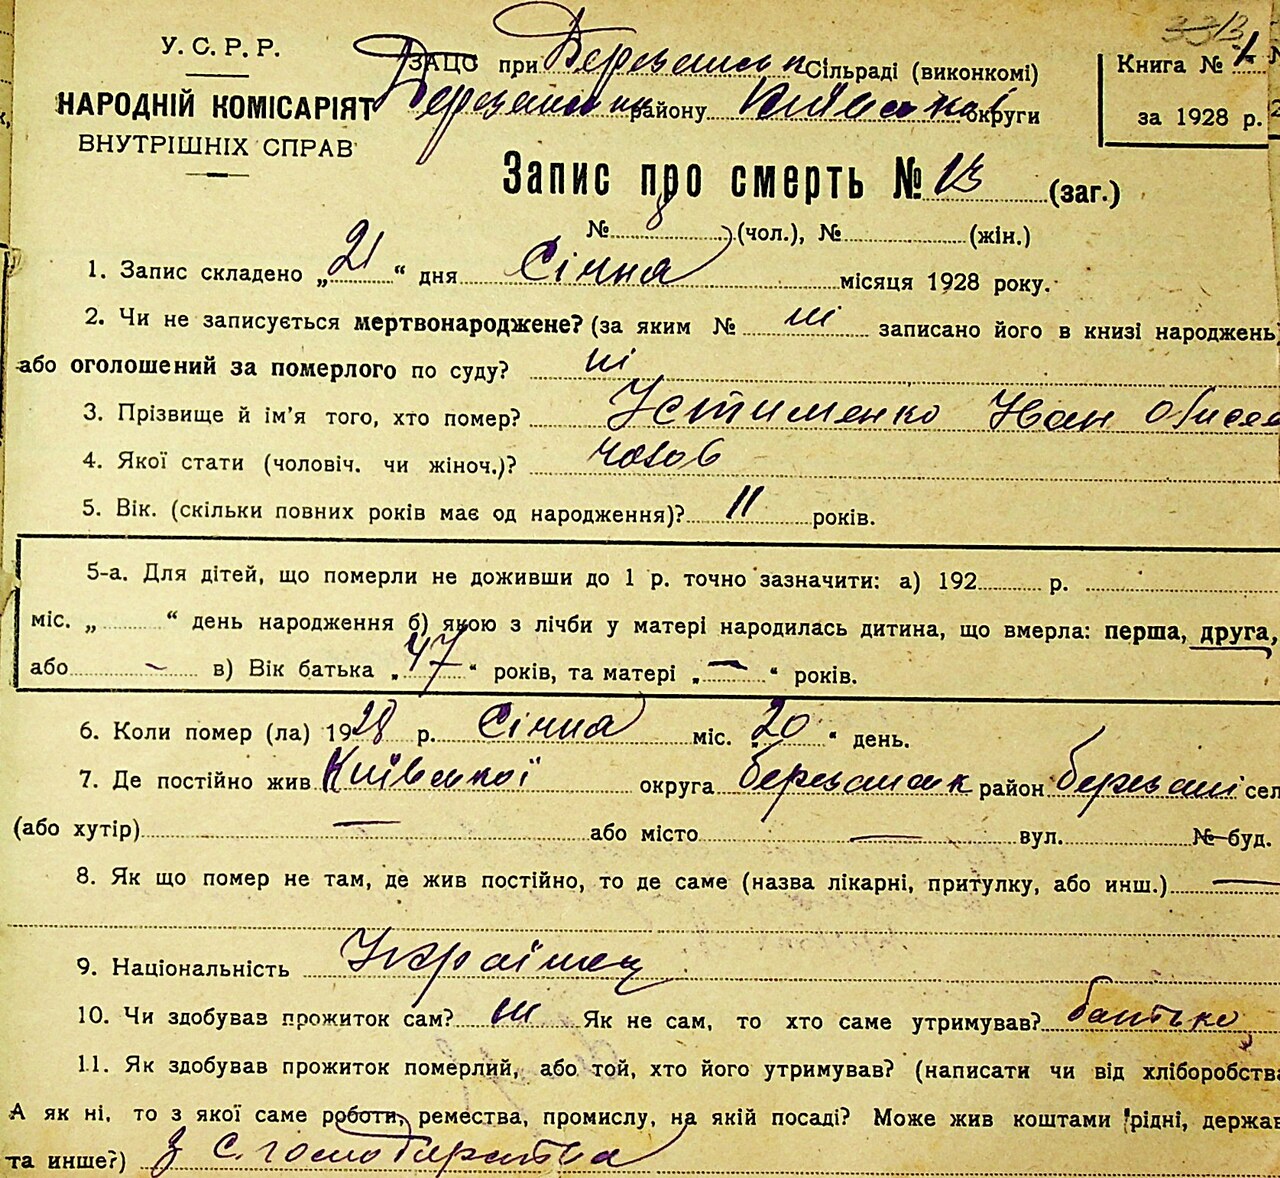 У. С. Р. Р.
НАРОДНІЙ КОМІСАРІЯТ
ВНУТРІШНІХ СПРАВ
ЗАЦС при Березанськ Сільраді (виконкомі)
Березанськ району Київської округи
Книга № 1
за 1928 р.
Запис про смерть № 13 (заг.)
№ 8 (чол.), № (жін.)
1. Запис складено „21“ дня Січня місяця 1928 року.
2. Чи не записується мертвонароджене? (за яким № ні записано його в книзі народжень)
або оголошений за померлого по суду? ні
3. Прізвище й ім'я того, хто помер? Устименко Иван
4. Якої стати (чоловіч. чи жіноч.)? чолов
5. Вік. (скільки повних років має од народження)? 11 років.
5-а. Для дітей, що померли не доживши до 1 р. точно зазначити: а) 192 р.
міс. „ “ день народження б) якою з лічби у матері народилась дитина, що вмерла: перша, друга,
або — в) Вік батька „47“ років, та матері „—“ років.
6. Коли помер (ла) 1928 р. Січня міс. „20“ день.
7. Де постійно жив Київської округа Березанськ район Березані сел
(або хутір) — або місто — вул. № буд.
8. Як що помер не там, де жив постійно, то де саме (назва лікарні, притулку, або инш.) —
9. Національність Українец
10. Чи здобував прожиток сам? ні Як не сам, то хто саме утримував? батько
11. Як здобував прожиток померлий, або той, хто його утримував? (написати чи від хліборобства
А як ні, то з якої саме роботи, ремества, промислу, на якій посаді? Може жив коштами рідні, держав
та инше?) з с. господарства